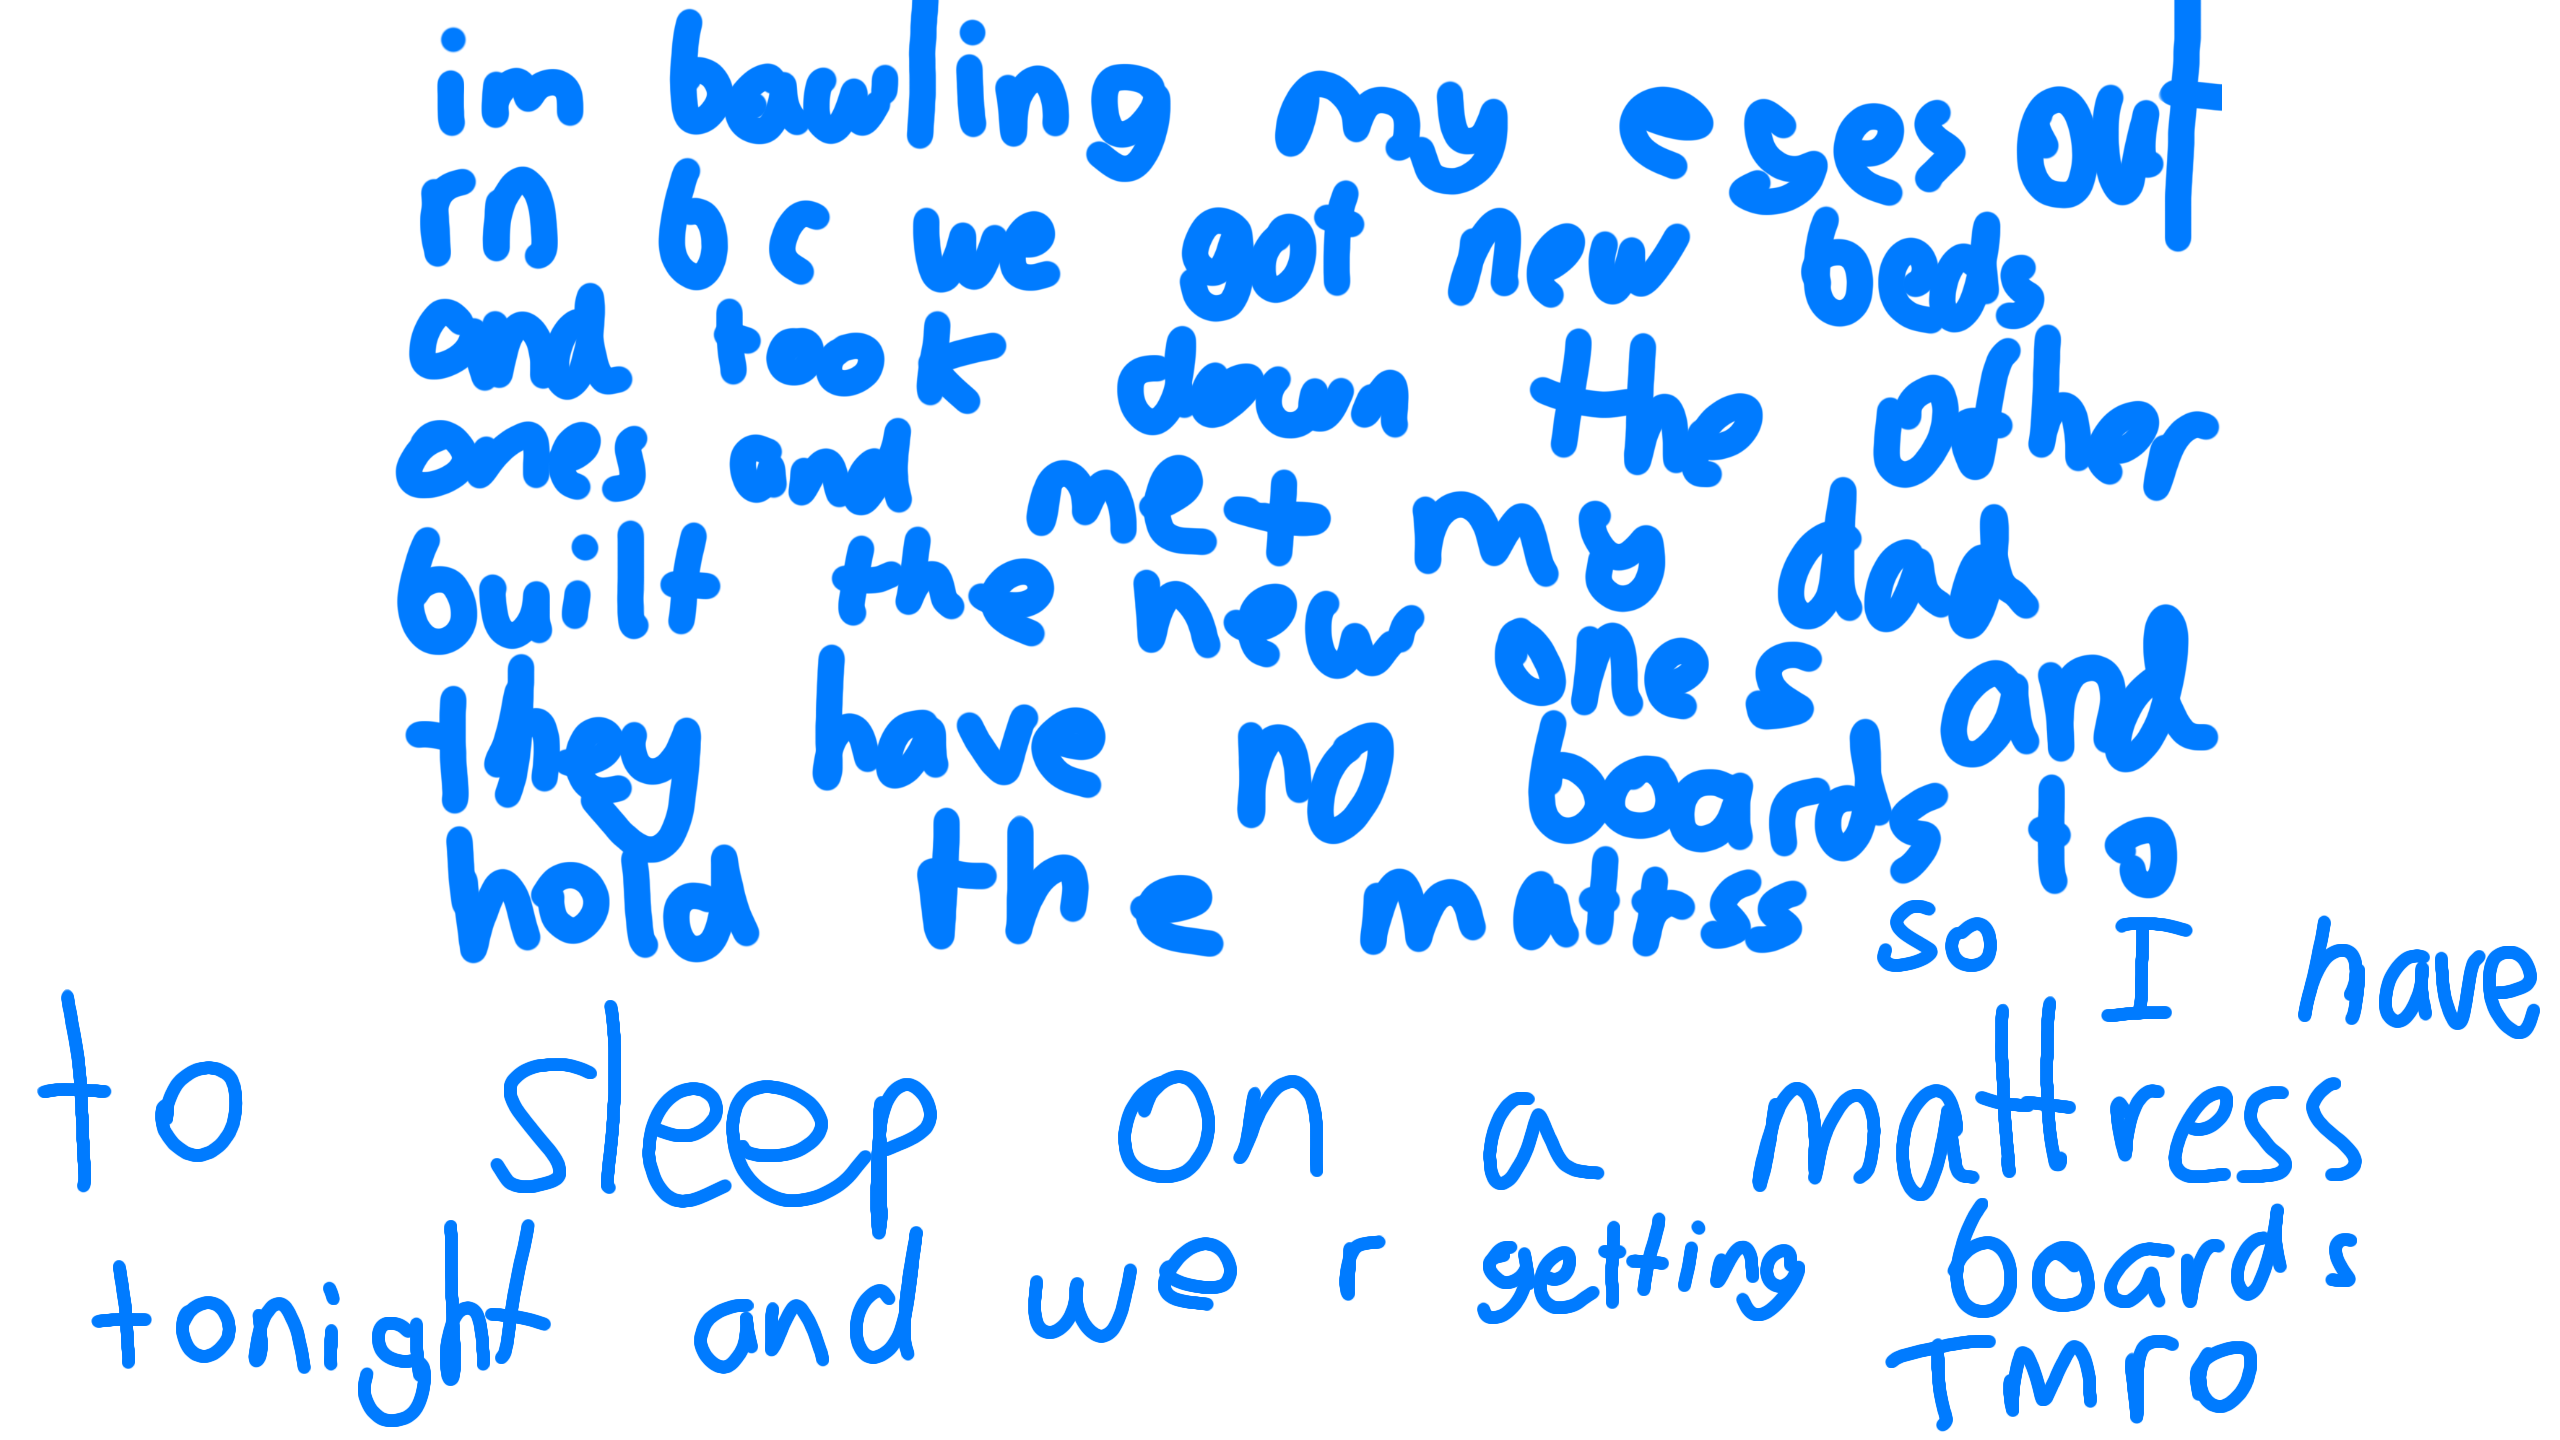 im bawling my eyes out
rn bc we got new beds
and took down the other
ones and me + my dad
built the new ones and
they have no boards to
hold the mattss so I have
to sleep on a mattress
tonight and we r getting boards
TMrO